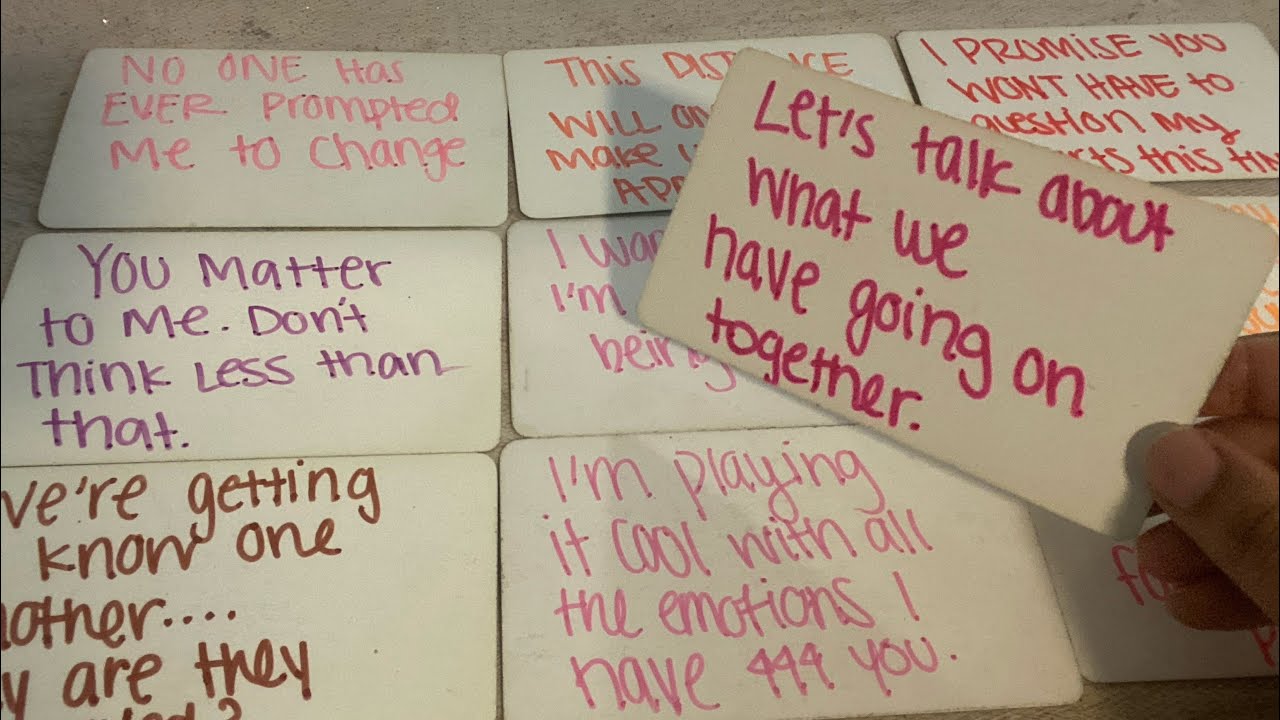 NO ONE Has
EVER Prompted
Me to Change
This
WILL
Make
I PROMISE YOU
WONT HAVE TO
question My
this
Let's talk about
what we
have going on
together.
You Matter
to Me. Don't
Think Less than
that.
I
I'm
being
we're getting
know one
are they
I'm playing
it cool with all
the emotions I
have 444 you.